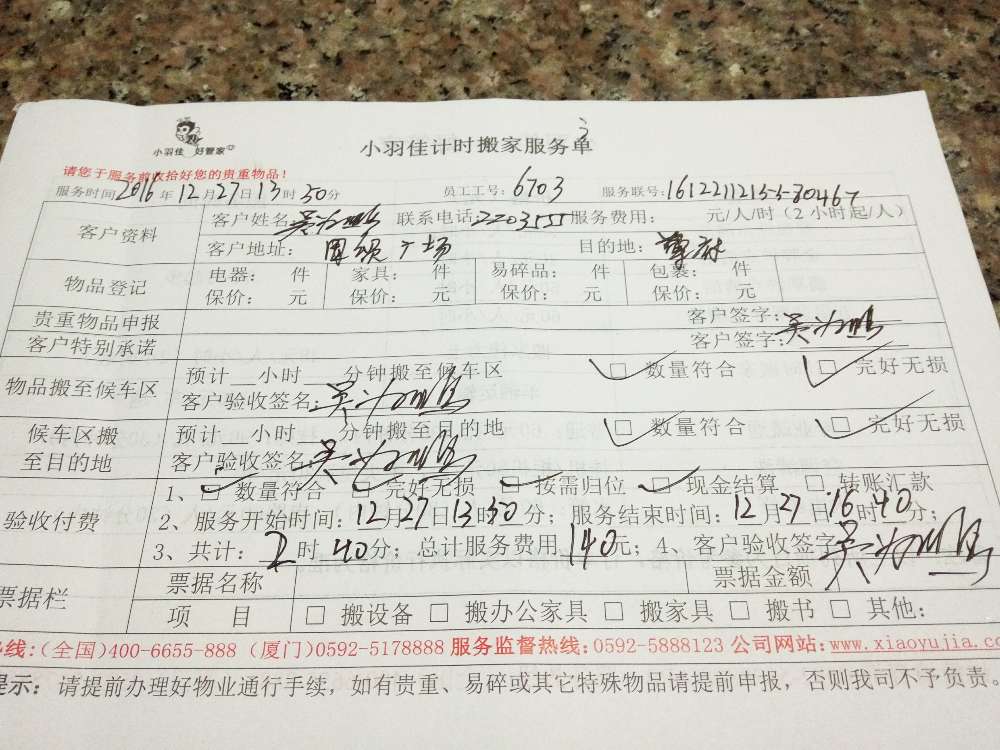 小羽佳 好管家
小羽佳计时搬家服务单
请您于服务前收拾好您的贵重物品!
服务时间2016年12月27日13时50分 员工工号:6703 服务联号:
客户资料 客户姓名: 联系电话:2203555 服务费用: 元/人/时(2小时起/人)
客户地址: 广场 目的地:
物品登记 电器: 件 家具: 件 易碎品: 件 包裹: 件
保价: 元 保价: 元 保价: 元 保价: 元
贵重物品申报 客户签字:
客户特别承诺 客户签字:
物品搬至候车区 预计__小时___分钟搬至候车区 □ 数量符合 □ 完好无损
客户验收签名:
候车区搬至目的地 预计__小时___分钟搬至目的地 □ 数量符合 □ 完好无损
客户验收签名:
验收付费 1、□ 数量符合 □ 完好无损 □ 按需归位 □ 现金结算 □ 转账汇款
2、服务开始时间:12月27日13时50分;服务结束时间:12月27日16时40分;
3、共计:2时40分;总计服务费用140元;4、客户验收签字
票据栏 票据名称 票据金额
项 目 □ 搬设备 □ 搬办公家具 □ 搬家具 □ 搬书 □ 其他:
热线:(全国)400-6655-888 (厦门)0592-5178888 服务监督热线:0592-5888123 公司网站:www.xiaoyujia.co
提示:请提前办理好物业通行手续,如有贵重、易碎或其它特殊物品请提前申报,否则我司不予负责。